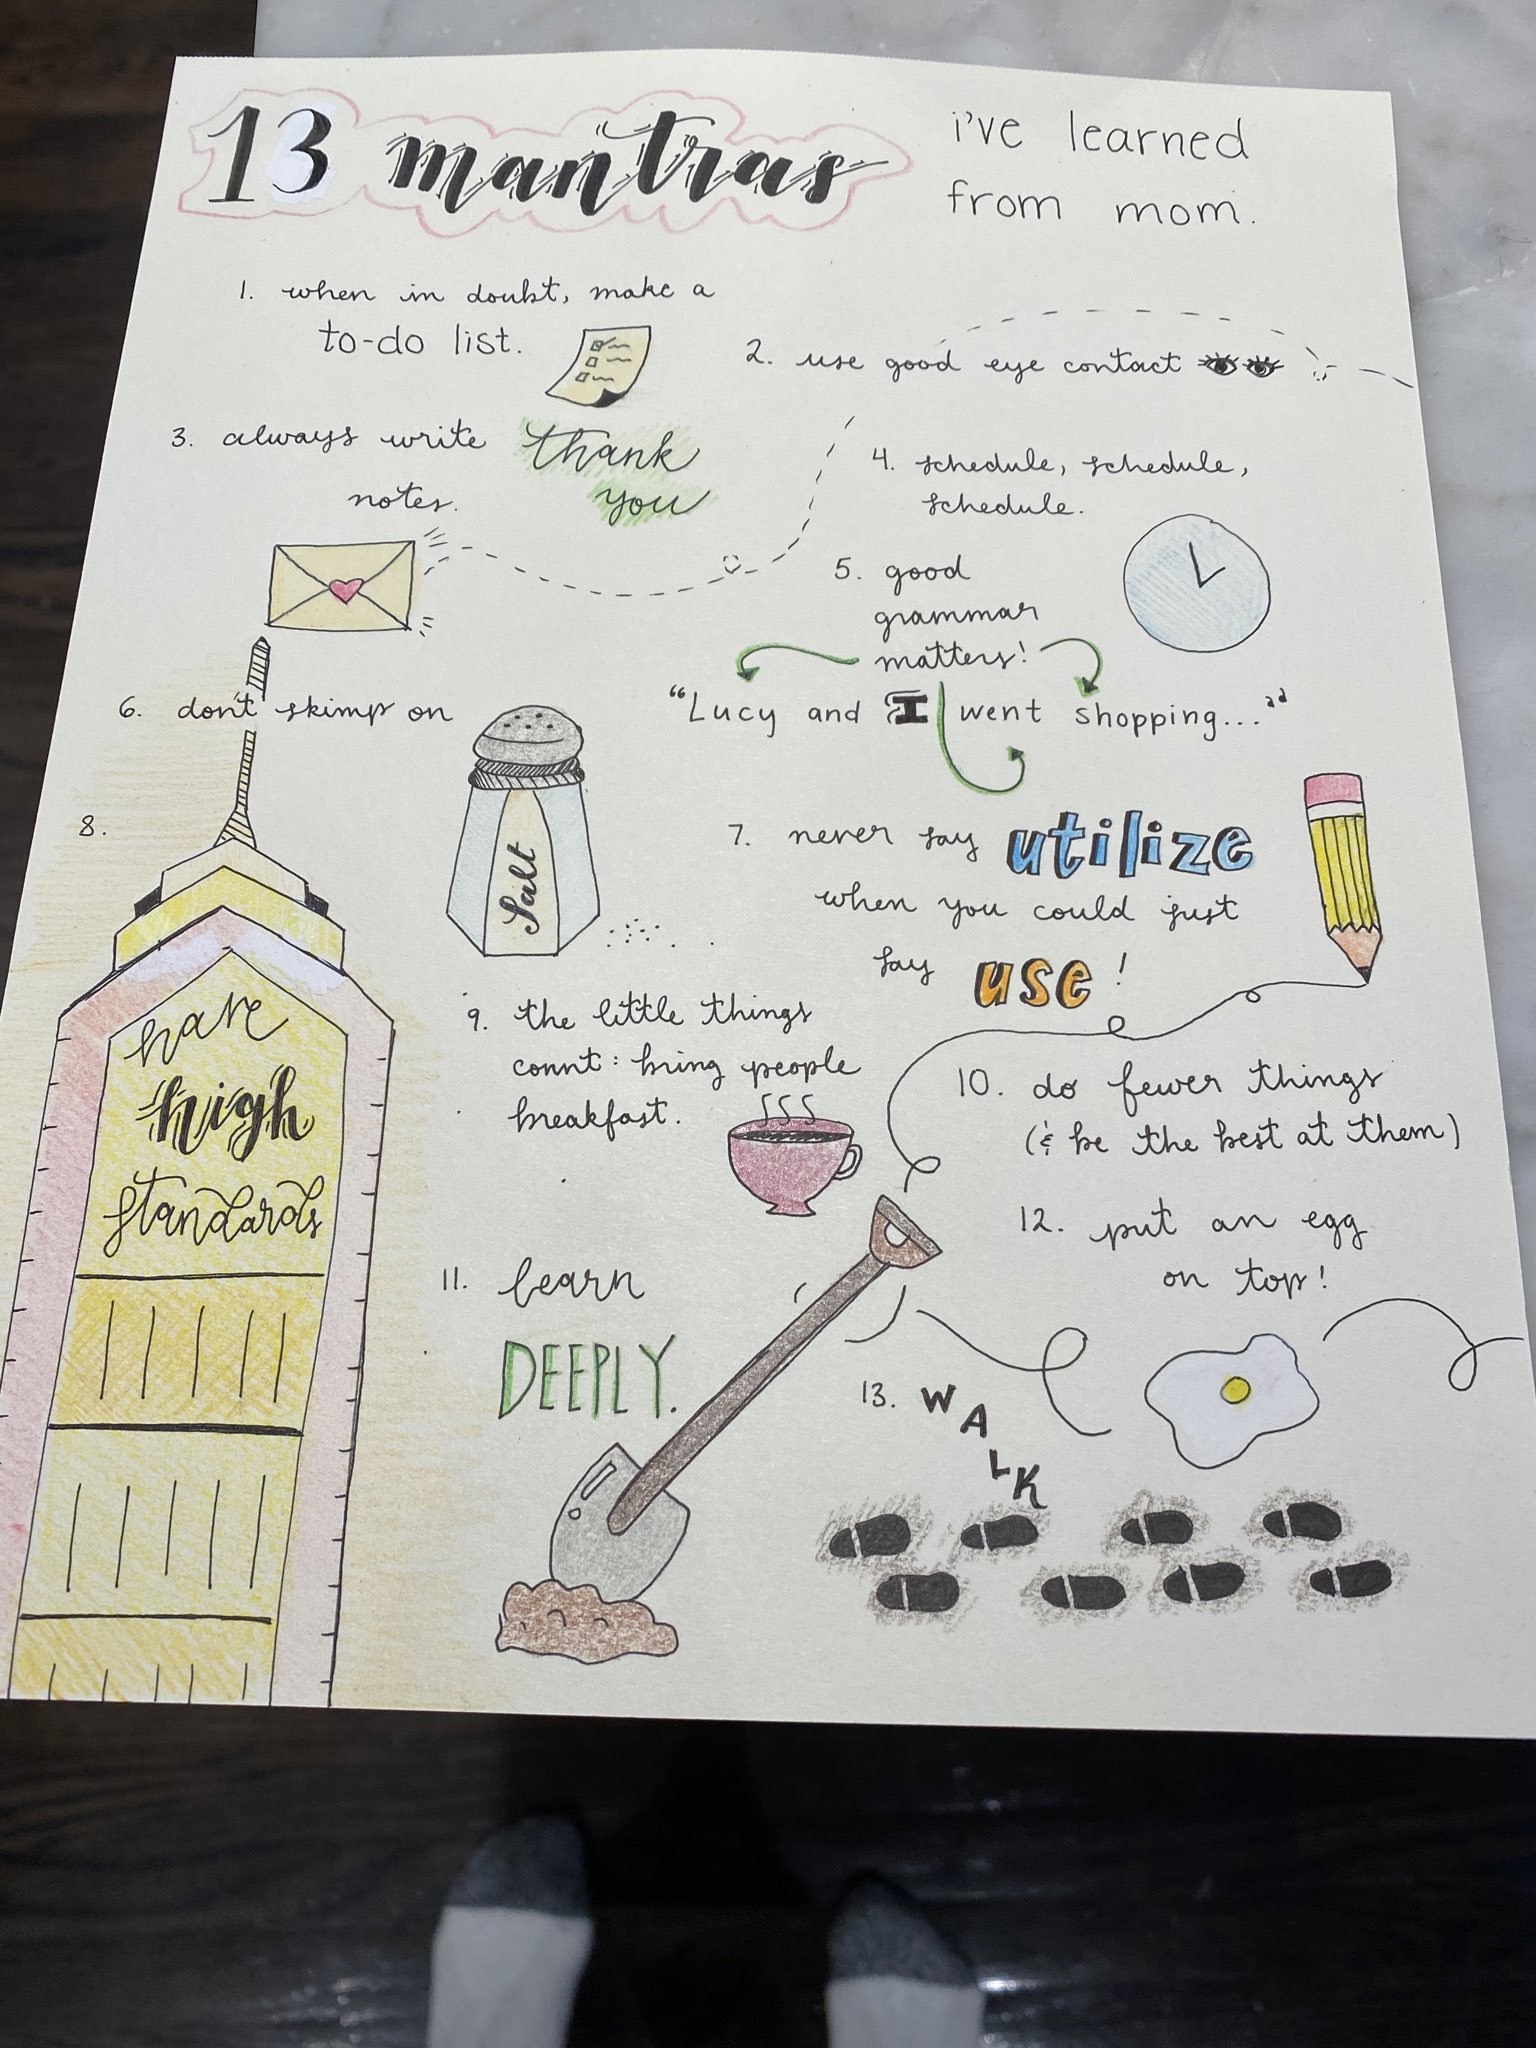 13 mantras
i've learned
from mom.
1. when in doubt, make a
to-do list.
2. use good eye contact
3. always write thank
you
notes.
4. schedule, schedule,
schedule.
5. good
grammar
matters!
"Lucy and I went shopping..."
6. don't skimp on
Salt
7. never say utilize
when you could just
say use!
8.
have
high
standards
9. the little things
count: bring people
breakfast.
10. do fewer things
(& be the best at them)
11. learn
DEEPLY.
12. put an egg
on top!
13. WALK